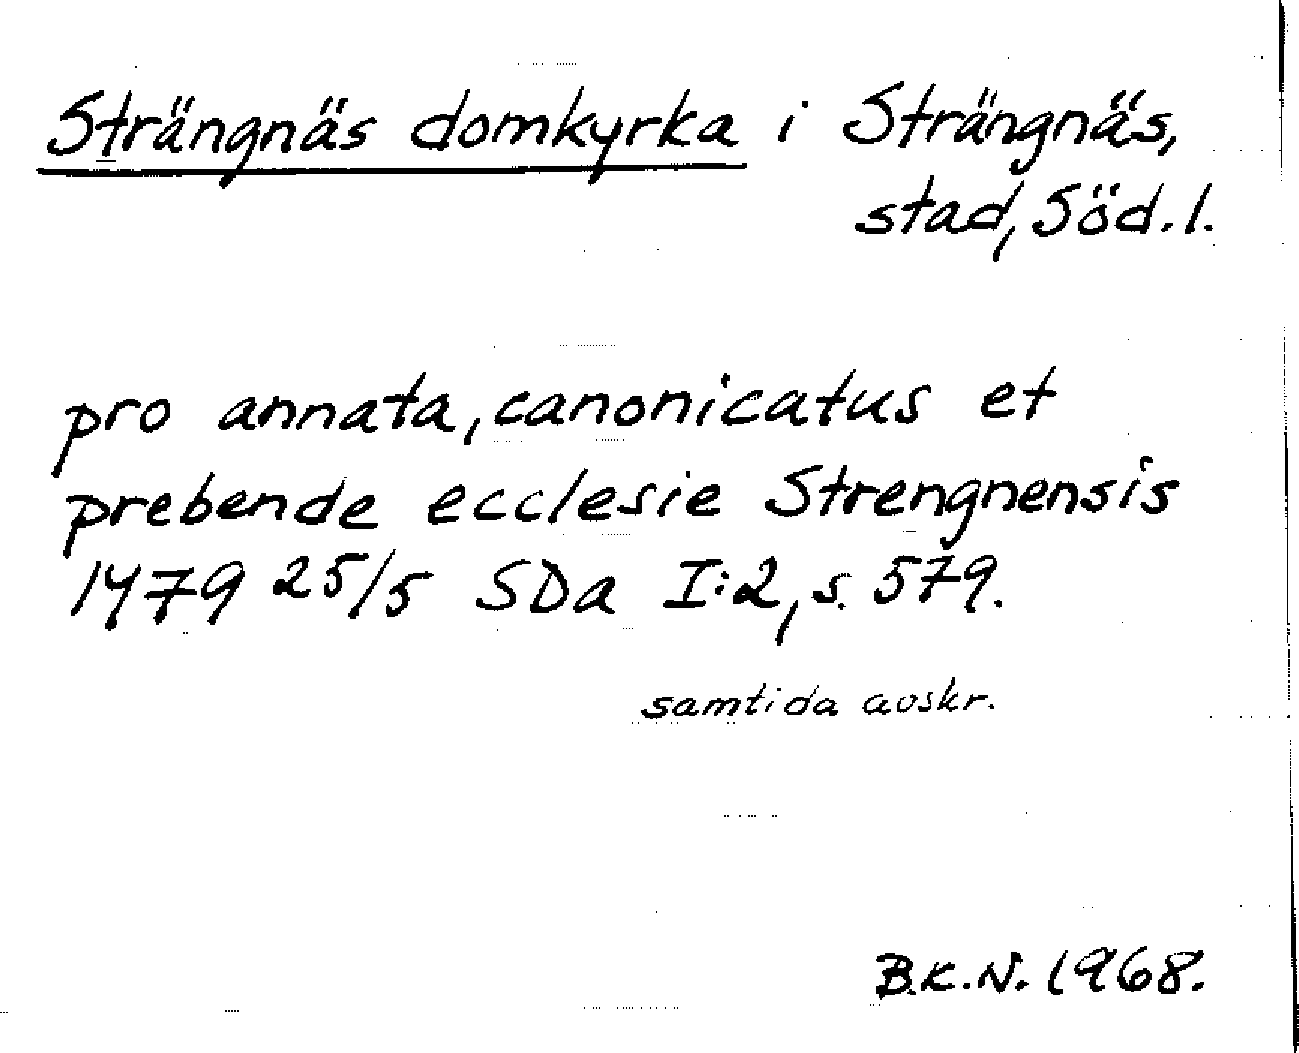 Strängnäs domkyrka i Strängnäs,
stad, Söd. l.
pro annata, canonicatus et
prebende ecclesie Strengnensis
1479 25/5 SDa I:2, s. 579.
samtida avskr.
B.K.N. 1968.